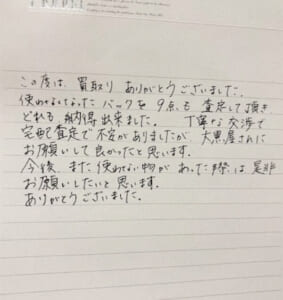 この度は、買取り ありがとうございました。
使わなくなった バックを 9点も 査定して頂き
どれも 納得出来ました。 丁寧な 交渉で
宅配査定で 不安がありましたが 大黒屋さんに
お願いして 良かったと 思います。
今後 また 使わない物が あった際は 是非
お願いしたいと 思います。
ありがとうございました。